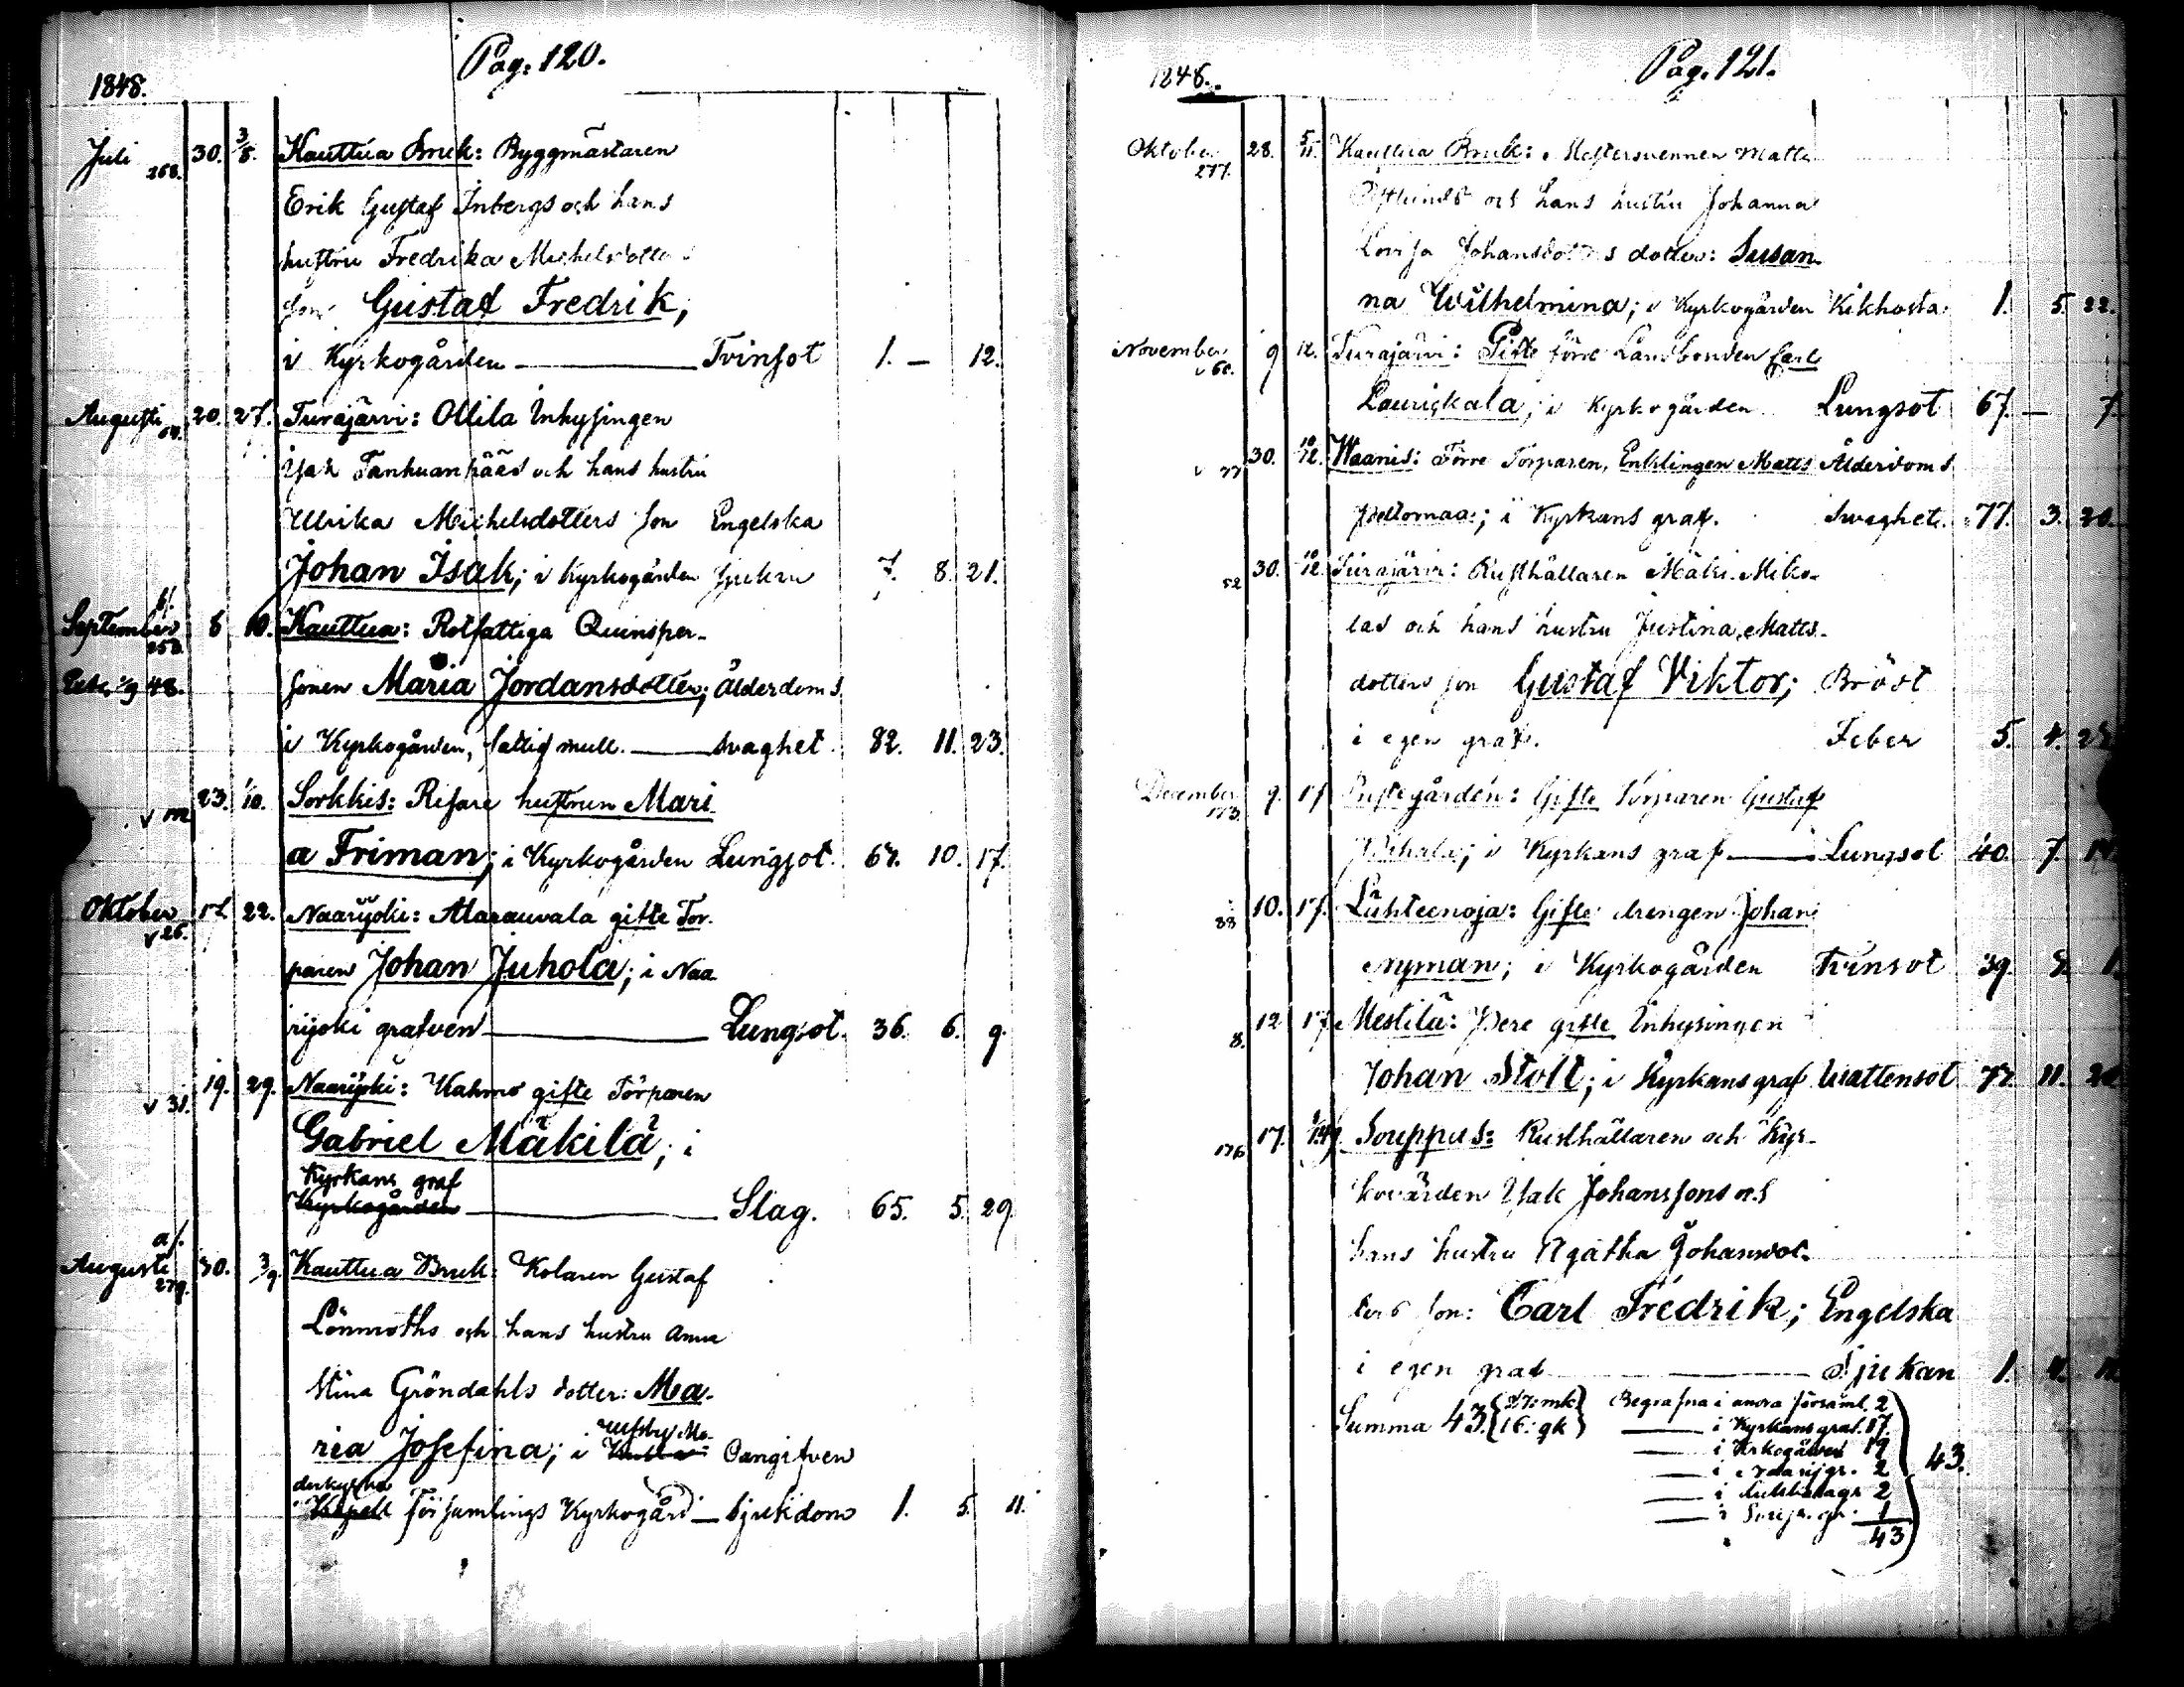 Pag. 120.
1848.
Juli 268. 30. 3/8. Kauttua Bruk: Byggmästaren
Erik Gustaf Inbergs och hans
hustru Fredrika Michelsdotters
son Gustaf Fredrik,
i Kyrkogården — Tvinsot 1. — 12.
Augusti 64. 20. 27. Turajärvi: Ollila Inhysingen
Isak Tanhuanpääs och hans hustru
Ulrika Michelsdotters son Engelska
Johan Isak; i Kyrkogården sjukan 7. 8. 21.
September 8 10. Kauttua: Rotfattiga Quinsper-
sonen Maria Jordansdotter; Ålderdoms
i Kyrkogården, fattig mull. — svaghet. 82. 11. 23.
23. 1/10. Sorkkis: Risare hustrun Mari
a Friman; i Kyrkogården Lungsot. 67. 10. 17.
Oktober v 26. 17 22. Naarijoki: Alarauvala gifte Tor-
paren Johan Juhola; i Naa
rijoki grafven — Lungsot. 36. 6. 9.
v 31. 19. 29. Naarijoki: Kahmo gifte Torparen
Gabriel Mäkilä; i
Kyrkans graf
Kyrkogården — Slag. 65. 5. 29
a/.
Augusti 279. 30. 3/9. Kauttua Bruk: Kolaren Gustaf
Lönnroths och hans hustru Anna
Stina Gröndahls dotter: Ma-
ria Josefina; i Ulfsby Mo- Oangifven
derkyrko församlings Kyrkogård — sjukdom 1. 5. 11.
Pag. 121.
1848.
Oktober 277. 28. 5/11. Kauttua Bruk: Mästersvennen Matts
och hans hustru Johanna
Lovisa Johansdotters dotter: Susan-
na Wilhelmina; i Kyrkogården Kikhosta. 1. 5. 22.
November v 60. 9 12. Turajärvi: Gifte förre Landbonden Carl
Lauriskala; i Kyrkogården Lungsot 67. — 7.
v 77 30. 10/12. Waanis: Förre Torparen, Enklingen Matts Ålderdoms
Peltomaa; i Kyrkans graf. Svaghet. 77. 3. 20.
52 30. 10/12. Turajärvi: Rusthållaren Mäki-Miko-
las och hans hustru Justina Matts-
dotters son Gustaf Viktor; Bröst
i egen graf. Feber 5. 4.
December 173. 9. 17 Prestegården: Gifte Torparen Gustaf
i Kyrkans graf — Lungsot 40. 7.
88 10. 17. Lähteenoja: Gifte drengen Johan
Nyman; i Kyrkogården Tvinsot 39. 8. 1
8. 12 17 Mestilä: Pere gifte Inhysingen
Johan Stolt; i Kyrkans graf Wattensot 77. 11. 20
176 17. Souppus: Rusthållaren och Kyr-
kovärden Isak Johanssons och
hans hustru Agatha Johansdot-
ters son: Carl Fredrik; Engelska
i egen graf — Sjukan 1. 4.
Summa 43. {27: mk 16: qk} Begrafna i andra församl. 2
— i Kyrkans graf. 17.
— i Krkogården 19
— i Naarijgr. 2
— i gr 2
— i gr. 1
43
43.